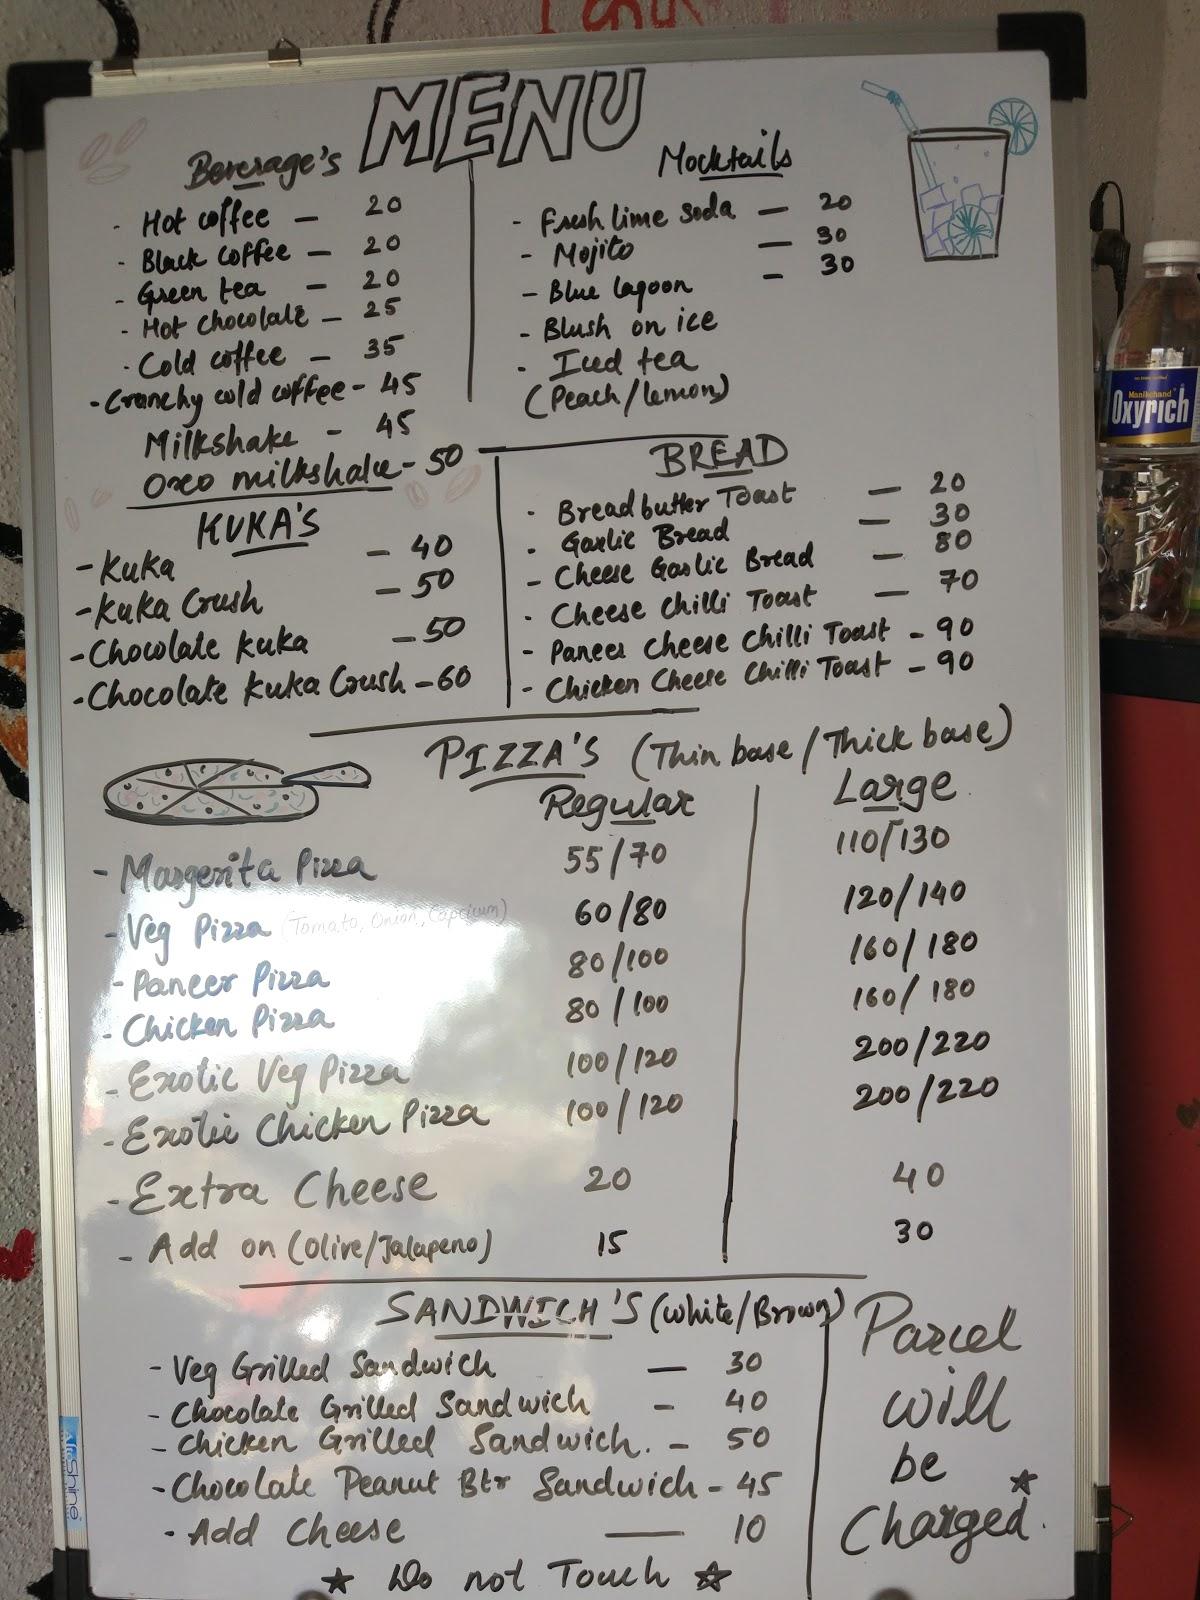 MENU
Beverage's
- Hot coffee — 20
- Black coffee — 20
- Green tea — 20
- Hot chocolate — 25
- Cold coffee — 35
- Crunchy cold coffee - 45
Milkshake - 45
Oreo milkshake - 50
Mocktails
- Fresh lime soda — 20
- Mojito — 30
- Blue lagoon — 30
- Blush on ice
- Iced tea
(Peach/lemon)
KUKA'S
- Kuka — 40
- Kuka Crush — 50
- Chocolate Kuka — 50
- Chocolate Kuka Crush — 60
BREAD
- Bread butter Toast — 20
- Garlic Bread — 30
- Cheese Garlic Bread — 80
- Cheese Chilli Toast — 70
- Paneer Cheese Chilli Toast - 90
- Chicken Cheese Chilli Toast - 90
PIZZA'S (Thin base/Thick base)
Regular Large
- Margerita Pizza 55/70 110/130
- Veg Pizza (Tomato, Onion, Capcicum) 60/80 120/140
- Paneer Pizza 80/100 160/180
- Chicken Pizza 80/100 160/180
- Exotic Veg Pizza 100/120 200/220
- Exotic Chicken Pizza 100/120 200/220
- Extra Cheese 20 40
- Add on (Olive/Jalapeno) 15 30
SANDWICH'S (White/Brown)
- Veg Grilled Sandwich — 30
- Chocolate Grilled Sandwich - 40
- Chicken Grilled Sandwich. - 50
- Chocolate Peanut Btr Sandwich - 45
- Add Cheese — 10
Do not Touch
Parcel
will
be
Charged.
Manikchand
Oxyrich